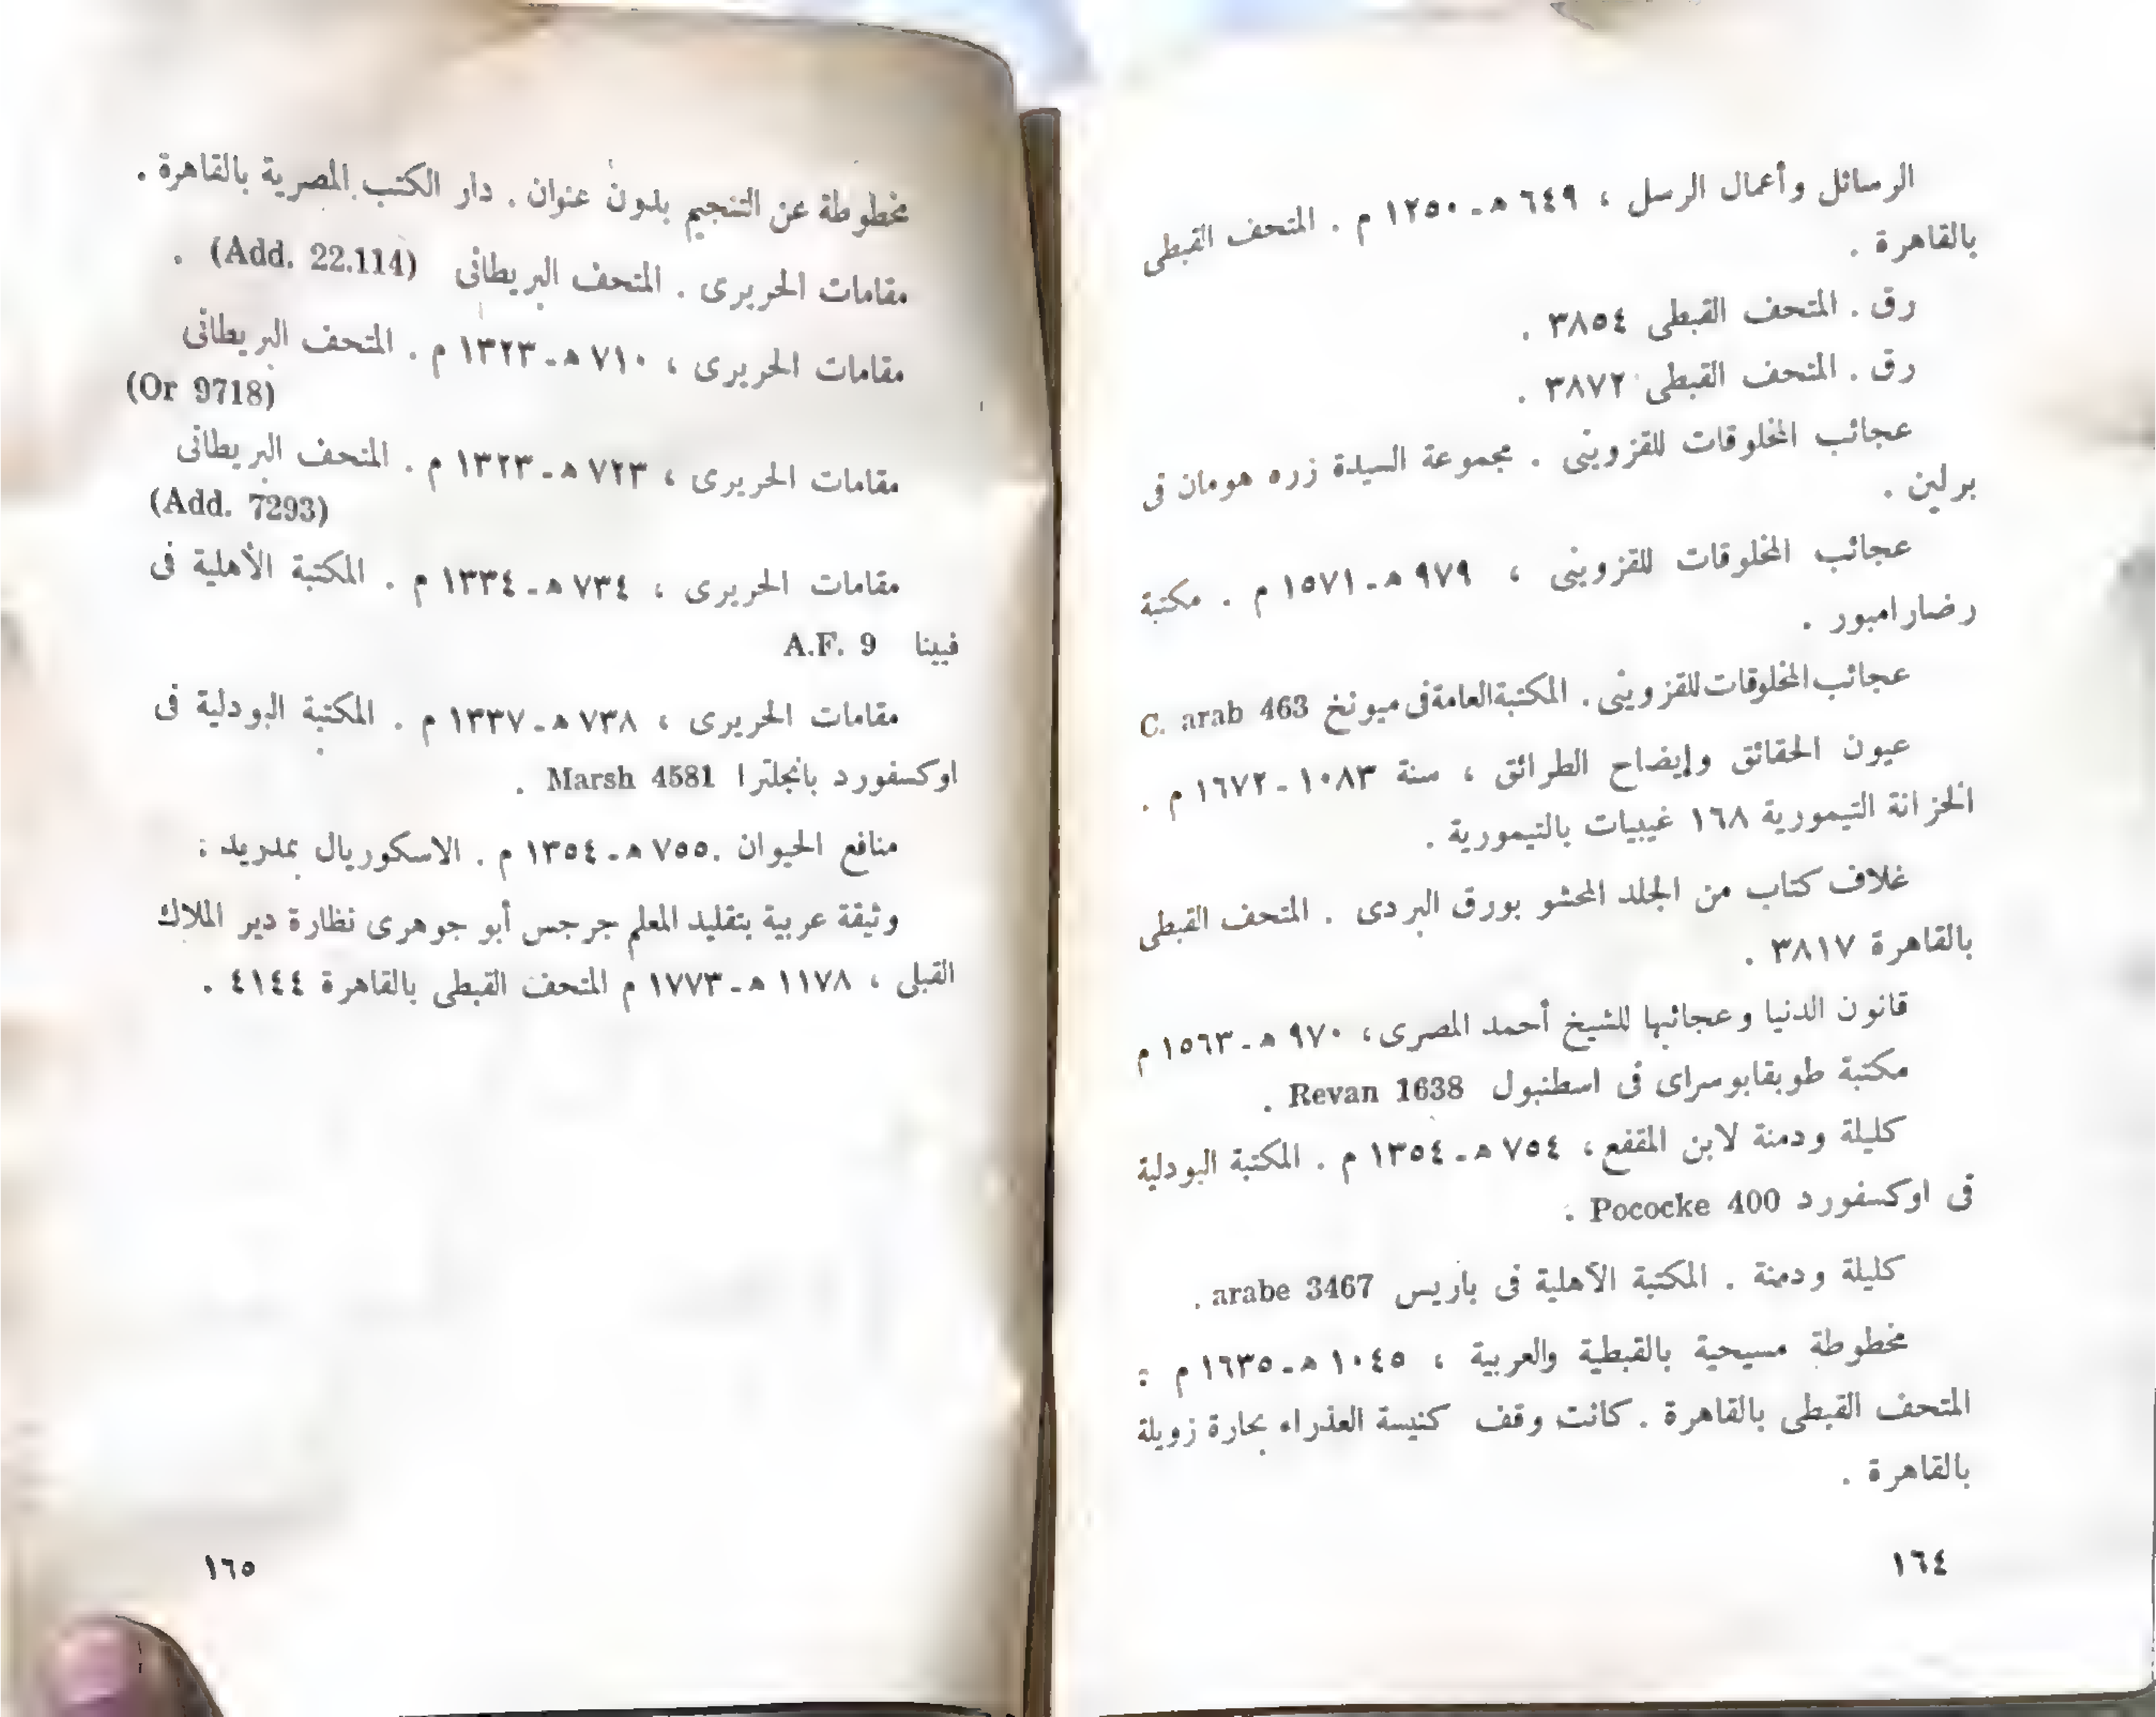 الرسائل وأعمال الرسل ، ٦٤٩ هـ - ١٢٥٠ م . المتحف القبطى
بالقاهرة .
رق . المتحف القبطى ٣٨٥٤ .
رق . المتحف القبطى ٣٨٧٢ .
عجائب المخلوقات للقزوينى . مجموعة السيدة زره هومان فى
برلين .
عجائب المخلوقات للقزوينى ، ٩٧٩ هـ - ١٥٧١ م . مكتبة
رضارامبور .
عجائب المخلوقات للقزوينى . المكتبة العامة فى ميونخ C. arab 463
عيون الحقائق وإيضاح الطرائق ، سنة ١٠٨٣ - ١٦٧٢ م .
الخزانة التيمورية ١٦٨ غيبيات بالتيمورية .
غلاف كتاب من الجلد المحشو بورق البردى . المتحف القبطى
بالقاهرة ٣٨١٧ .
قانون الدنيا وعجائبها للشيخ أحمد المصرى ، ٩٧٠ هـ - ١٥٦٣ م
مكتبة طوبقابوسراى فى اسطنبول Revan 1638 .
كليلة ودمنة لابن المقفع ، ٧٥٤ هـ - ١٣٥٤ م . المكتبة البودلية
فى اوكسفورد Pococke 400 .
كليلة ودمنة . المكتبة الأهلية فى باريس arabe 3467 .
مخطوطة مسيحية بالقبطية والعربية ، ١٠٤٥ هـ - ١٦٣٥ م :
المتحف القبطى بالقاهرة . كانت وقف كنيسة العذراء بحارة زويلة
بالقاهرة .
١٦٤
مخطوطة عن التنجيم بدون عنوان . دار الكتب المصرية بالقاهرة .
مقامات الحريرى . المتحف البريطانى (Add. 22.114) .
مقامات الحريرى ، ٧١٠ هـ - ١٣٢٣ م . المتحف البريطانى
(Or 9718)
مقامات الحريرى ، ٧٢٣ هـ - ١٣٢٣ م . المتحف البريطانى
(Add. 7293)
مقامات الحريرى ، ٧٣٤ هـ - ١٣٣٤ م . المكتبة الأهلية فى
فيينا A.F. 9
مقامات الحريرى ، ٧٣٨ هـ - ١٣٣٧ م . المكتبة البودلية فى
اوكسفورد بانجلترا Marsh 4581 .
منافع الحيوان . ٧٥٥ هـ - ١٣٥٤ م . الاسكوريال بمدريد :
وثيقة عربية بتقليد المعلم جرجس أبو جوهرى نظارة دير الملاك
القبلى ، ١١٧٨ هـ - ١٧٧٣ م المتحف القبطى بالقاهرة ٤١٤٤ .
١٦٥